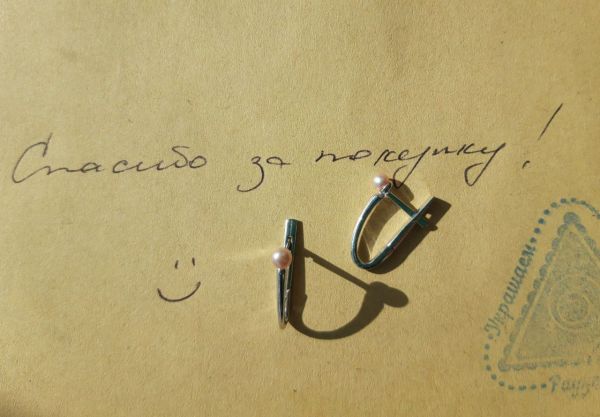 Спасибо за покупку!
Украшаем